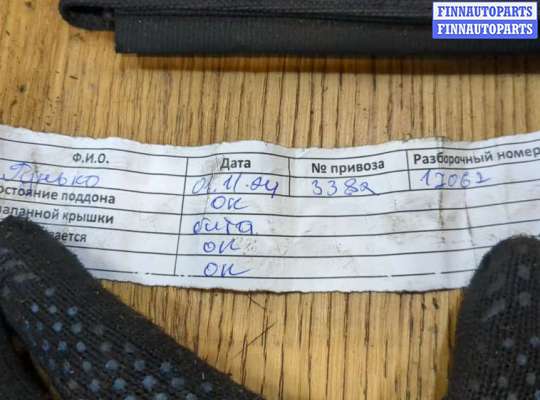 FINNAUTOPARTS
FINNAUTOPARTS
Ф.И.О. Дата № привоза Разборочный номер
01.11.24 3382 17062
остояние поддона ок
апанной крышки бита
вается ок
ок